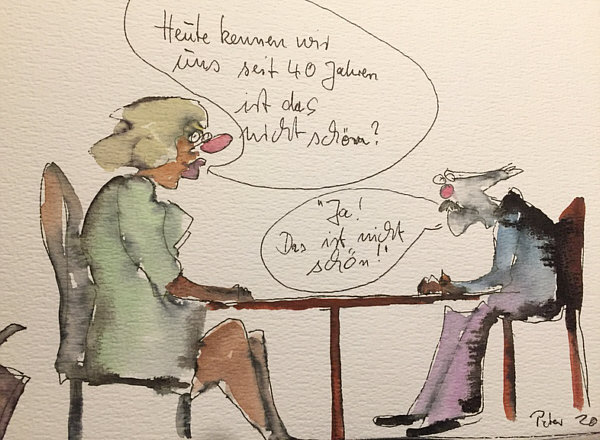 Heute kennen wir
uns seit 40 Jahren
ist das
nicht schön?
"Ja!
Das ist nicht
schön!"
Peter 20